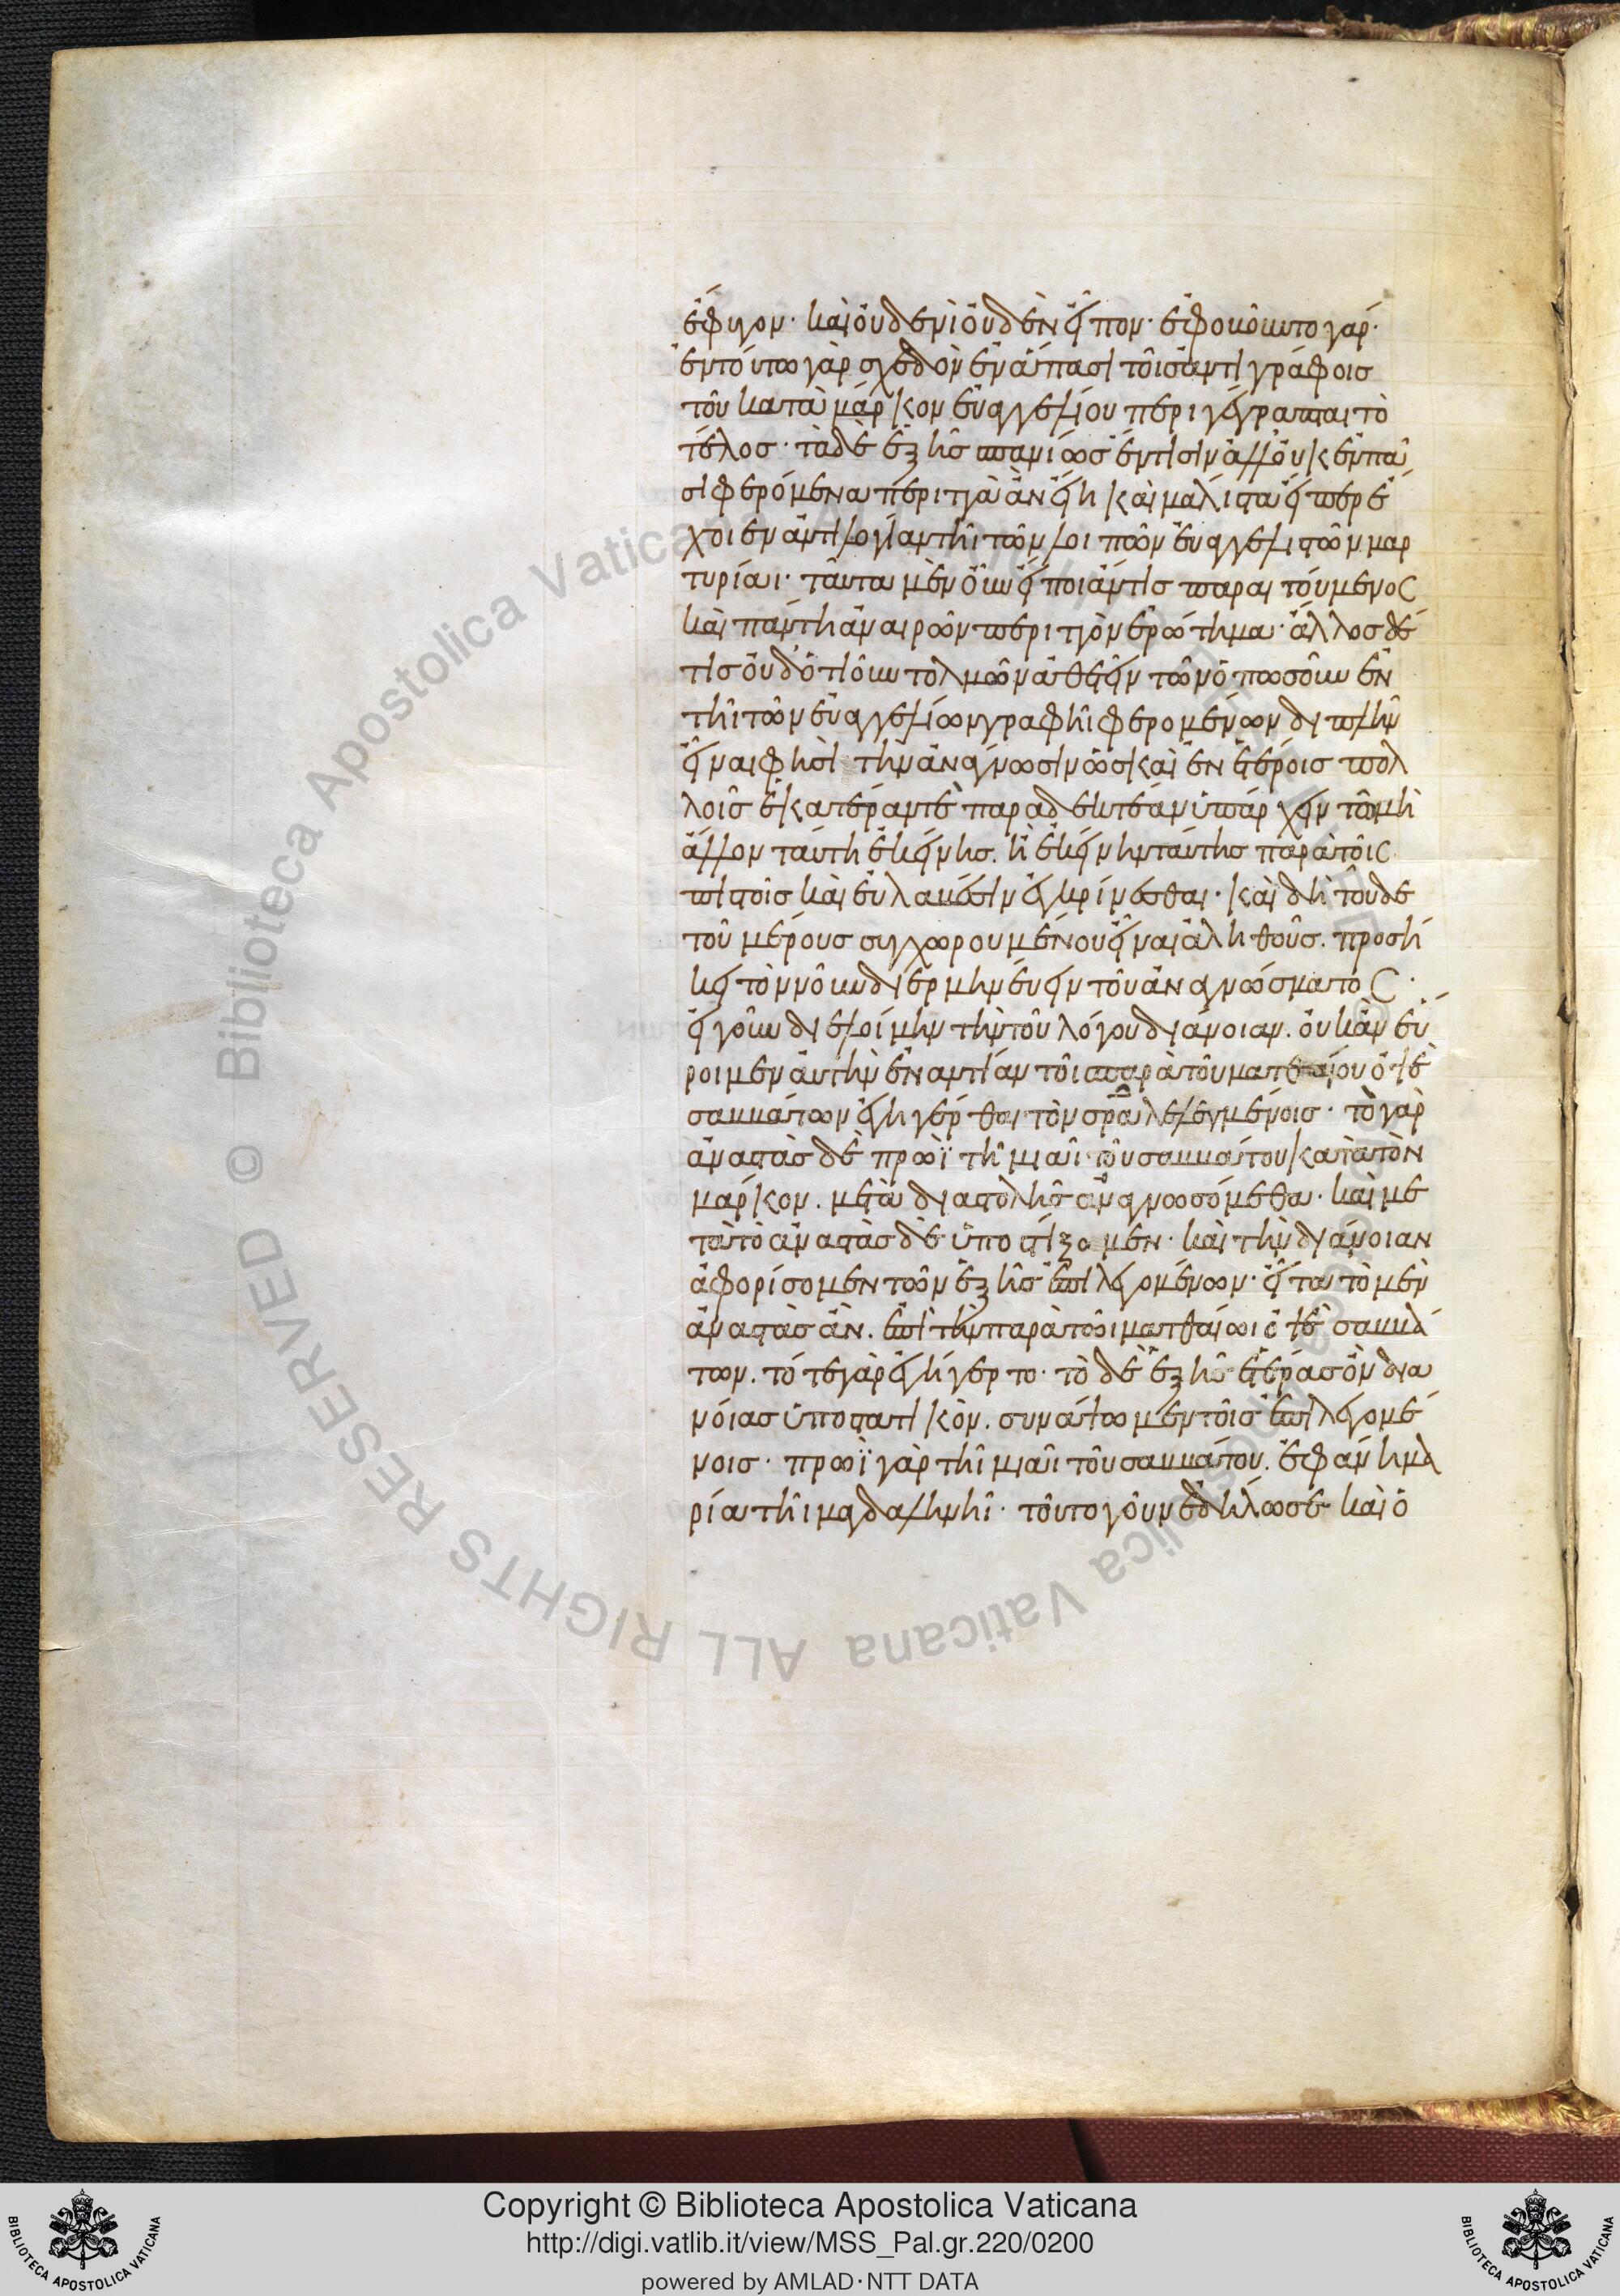 ἔφυγον· καὶ οὐδενὶ οὐδὲν εἶπον· ἐφοβοῦντο γάρ·
ἐν τούτω γὰρ σχεδὸν ἐν ἅπασι τοῖς ἀντιγράφοις
τοῦ κατὰ μάρκον εὐαγγελίου περιγέγραπται τὸ
τέλος· τὰ δὲ ἑξῆς σπανίως ἔν τισιν ἀλλ' οὐκ ἐν πᾶ
σι φερόμενα περιττὰ ἂν εἴη καὶ μάλιστα εἴπερ ἔ
χοιεν ἀντιλογίαν τῆι τῶν λοιπῶν εὐαγγελιστῶν μαρ
τυρίαι· ταῦτα μὲν οὖν εἴποι ἄν τις παραιτούμενος
καὶ πάντη ἀναιρῶν περιττὸν ἐρώτημα· ἄλλος δέ
τις οὐδ' ὁτιοῦν τολμῶν ἀθετεῖν τῶν ὁπωσοῦν ἐν
τῆι τῶν εὐαγγελίων γραφῆι φερομένων διπλῆν
εἶναι φησὶ τὴν ἀνάγνωσιν ὡς καὶ ἐν ἑτέροις πολ
λοῖς ἑκατέραν τὲ παραδεκτέαν ὑπάρχειν τῶ μὴ
ἄλλον ταύτη ἐκείνης. ἢ ἐκείνην ταύτης παρὰ τοῖς
πιστοῖς καὶ εὐλαβέσιν ἐγκρίνεσθαι· καὶ δὴ τοῦδε
τοῦ μέρους συγχωρουμένου εἶναι ἀληθοῦς. προσή
κει τὸν νοῦν διερμηνεύειν τοῦ ἀναγνώσματος·
εἰ γοῦν διέλοιμεν τὴν τοῦ λόγου διάνοιαν. οὐκ ἂν εὕ
ροιμεν αὐτὴν ἐναντίαν τοῖς παρὰ τοῦ ματθαίου ὀψὲ
σαββάτων ἐγηγέρθαι τὸν σρα λελεγμένοις· τὸ γὰρ
ἀναστὰς δὲ πρωῒ τῆ μιᾶι τοῦ σαββάτου κατὰ τὸν
μάρκον. μετὰ διαστολῆς ἀναγνωσόμεθα· καὶ με
τὰ τὸ ἀναστὰς δὲ ὑποστίξομεν· καὶ τὴν διάνοιαν
ἀφορίσομεν τῶν ἑξῆς ἐπιλεγομένων· εἶτα τὸ μὲν
ἀναστὰς ἂν. ἐπὶ τὴν παρὰ τῶι ματθαίωι ὀψὲ σαββά
των. τότε γὰρ ἐγήγερτο· τὸ δὲ ἑξῆς ἑτέρας ὂν δια
νοίας ὑποστατικὸν. συνάψωμεν τοῖς ἐπιλεγομέ
νοις· πρωῒ γὰρ τῆι μιᾶι τοῦ σαββάτου. ἐφάνη μα
ρία τῆι μαγδαληνῆι· τοῦτο γοῦν ἐδήλωσε καὶ ὁ
Copyright © Biblioteca Apostolica Vaticana
http://digi.vatlib.it/view/MSS_Pal.gr.220/0200
powered by AMLAD·NTT DATA
BIBLIOTECA APOSTOLICA VATICANA
BIBLIOTECA APOSTOLICA VATICANA